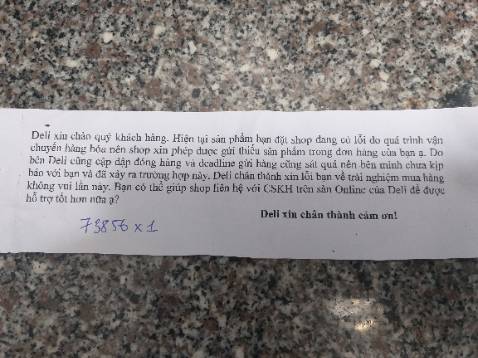 Deli xin chào quý khách hàng. Hiện tại sản phẩm bạn đặt shop đang có lỗi do quá trình vận
chuyển hàng hóa nên shop xin phép được gửi thiếu sản phẩm trong đơn hàng của bạn ạ. Do
bên Deli cũng cập dập đóng hàng và deadline gửi hàng cũng sát quá nên bên mình chưa kịp
báo với bạn và đã xảy ra trường hợp này. Deli chân thành xin lỗi bạn về trải nghiệm mua hàng
không vui lần này. Bạn có thể giúp shop liên hệ với CSKH trên sàn Online của Deli để được
hỗ trợ tốt hơn nữa ạ?
Deli xin chân thành cảm ơn!
73856 x 1